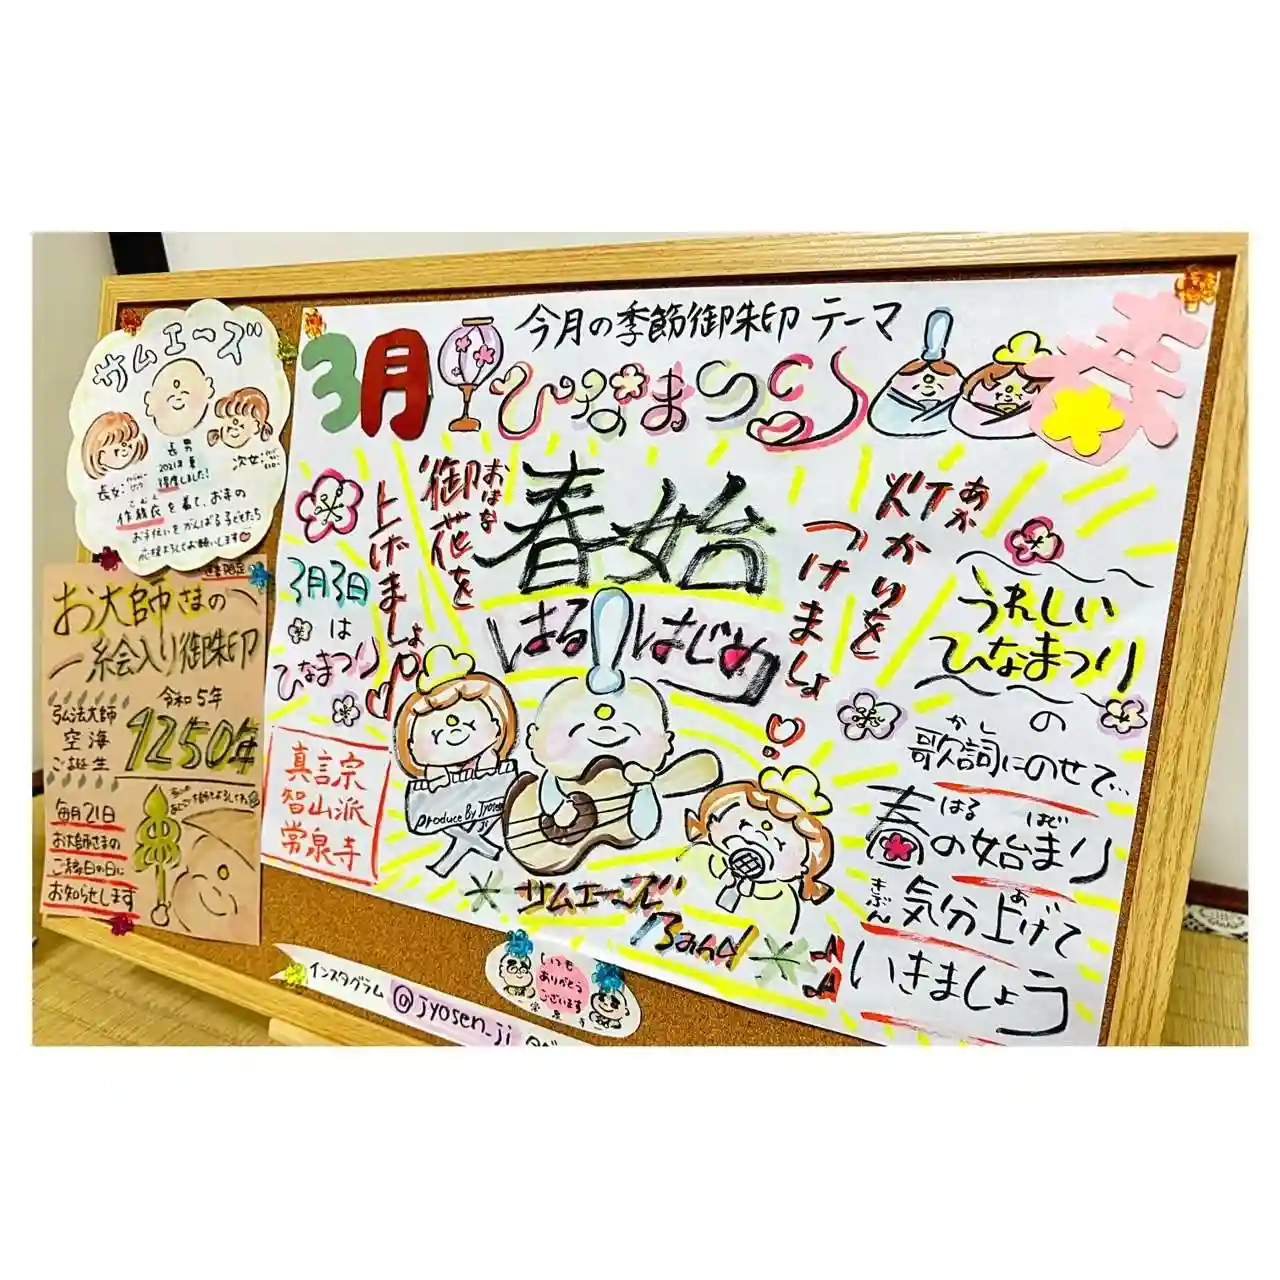 サムエーズ
長男
2021年夏
得度しました!
長女:
次女:
作務衣を着て、お寺の
お手伝いをがんばる子どもたち
応援よろしくお願いします
お大師さまの
絵入り御朱印
令和5年
弘法大師
空海
ご誕生
1250年
毎月21日
お大師さまの
ご縁日の日に
お知らせします
3月
今月の季節御朱印 テーマ
ひなまつり
春
御花を
おはな
上げましょ
春始
はるはじめ
灯かりを
あか
つけましょ
3月3日
は
ひなまつり
真言宗
智山派
常泉寺
Produce By Jyosen
ji
サムエーズ
Band
うれしい
ひなまつり
の
かし
歌詞にのせて…
はる はじ
春の始まり
きぶん あ
気分上げて
いきましょう
インスタグラム @jyosen_ji
いつも
ありがとう
ございます
常泉寺